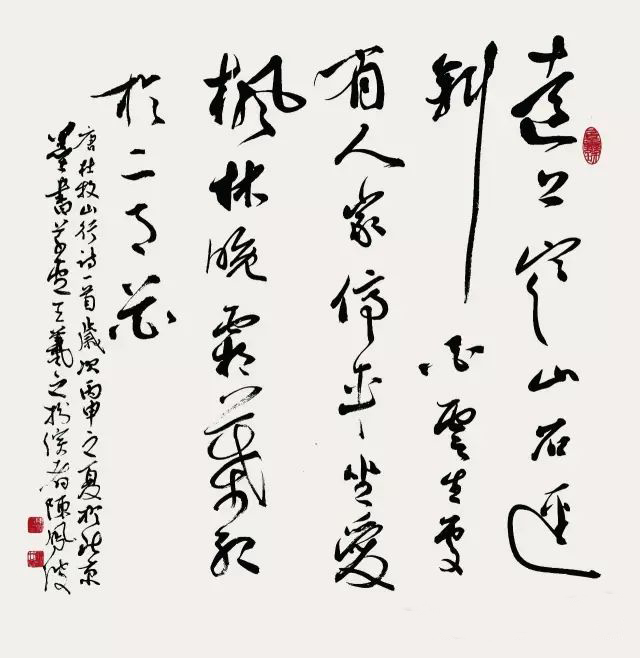 遠上寒山石逕
斜白雲生處
有人家停車坐愛
楓林晚霜葉紅
於二月花
唐杜牧山行詩一首歲次丙申之夏於北京
書王羲之陳